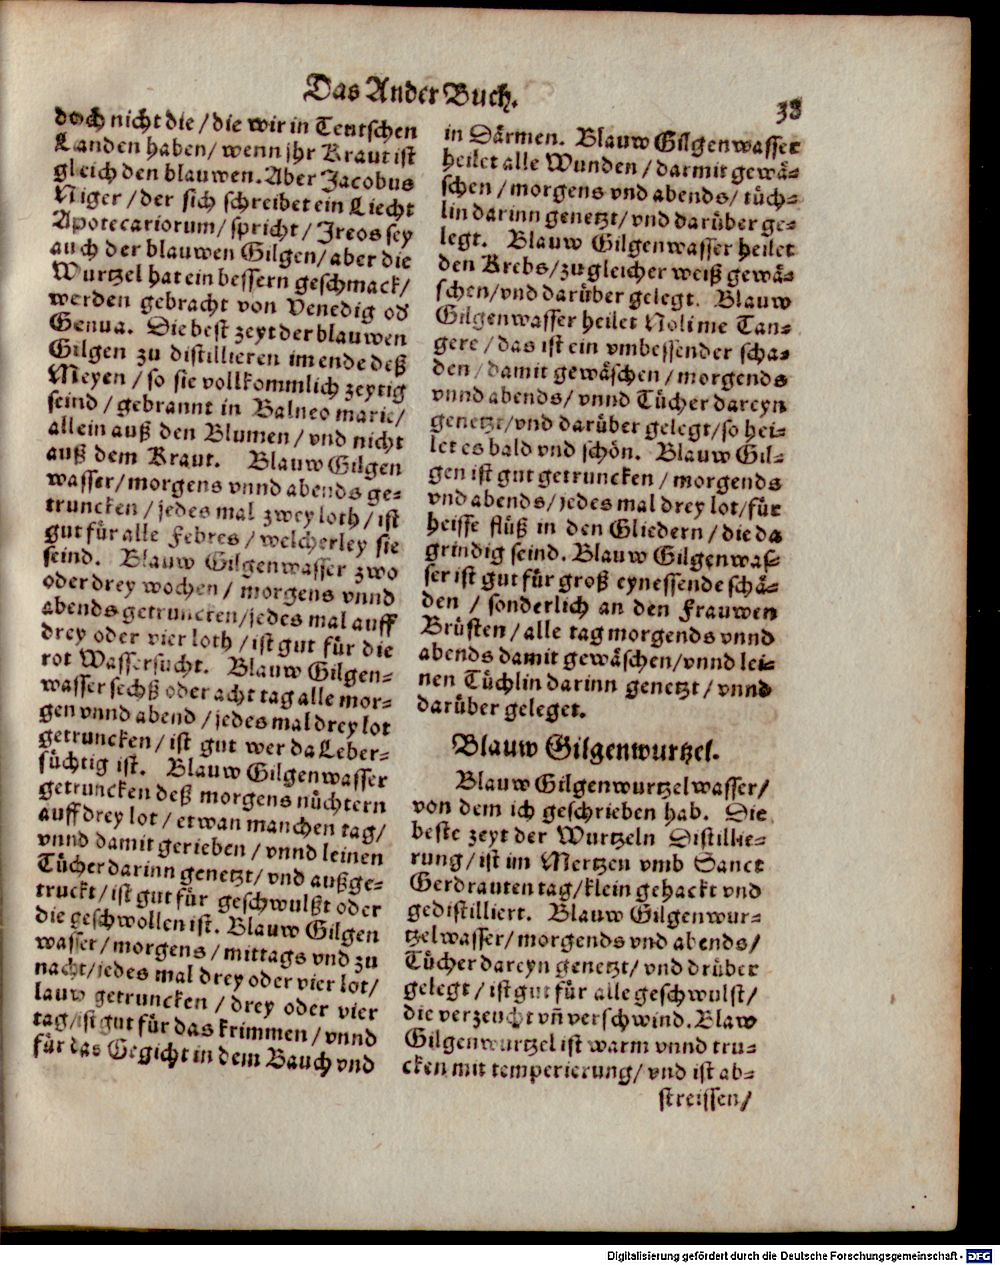 Das Ander Buch.
33
doch nicht die / die wir in Teutschen
Landen haben / wenn jhr Kraut ist
gleich den blauwen. Aber Jacobus
Niger / der sich schreibet ein Liecht
Apotecariorum / spricht / Ireos sey
auch der blauwen Gilgen / aber die
Wurtzel hat ein bessern geschmack /
werden gebracht von Venedig od
Genua. Die best zeyt der blauwen
Gilgen zu distillieren im ende deß
Meyen / so sie vollkommlich zeytig
seind / gebrannt in Balneo marie /
allein auß den Blumen / vnd nicht
auß dem Kraut. Blauw Gilgen
wasser / morgens vnnd abends ge-
truncken / jedes mal zwey loth / ist
gut für alle Febres / welcherley sie
seind. Blauw Gilgenwasser zwo
oder drey wochen / morgens vnnd
abends getruncken / jedes mal auff
drey oder vier loth / ist gut für die
rot Wassersucht. Blauw Gilgen-
wasser sechß oder acht tag alle mor-
gen vnnd abend / jedes mal drey lot
getruncken / ist gut wer da Leber-
süchtig ist. Blauw Gilgenwasser
getruncken deß morgens nüchtern
auff drey lot / etwan manchen tag /
vnnd damit gerieben / vnnd leinen
Tücher darinn genetzt / vnd außge-
truckt / ist gut für geschwulßt oder
die geschwollen ist. Blauw Gilgen
wasser / morgens / mittags vnd zu
nacht / jedes mal drey oder vier lot /
lauw getruncken / drey oder vier
tag / ist gut für das krimmen / vnnd
für das Gegicht in dem Bauch vnd
in Därmen. Blauw Gilgenwasser
heilet alle Wunden / darmit gewä-
schen / morgens vnd abends / tüch-
lin darinn genetzt / vnd darüber ge-
legt. Blauw Gilgenwasser heilet
den Krebs / zu gleicher weiß gewä-
schen / vnd darüber gelegt. Blauw
Gilgenwasser heilet Noli me Tan-
gere / das ist ein vmbessender scha-
den / damit gewäschen / morgends
vnnd abends / vnnd Tücher dareyn
genetzt / vnd darüber gelegt / so hei-
let es bald vnd schön. Blauw Gil-
gen ist gut getruncken / morgends
vnd abends / jedes mal drey lot / für
heisse flüß in den Gliedern / die da
grindig seind. Blauw Gilgenwas-
ser ist gut für groß eynessende schä-
den / sonderlich an den Frauwen
Brüsten / alle tag morgends vnnd
abends damit gewäschen / vnnd lei-
nen Tüchlin darinn genetzt / vnnd
darüber geleget.
Blauw Gilgenwurtzel.
Blauw Gilgenwurtzelwasser /
von dem ich geschrieben hab. Die
beste zeyt der Wurtzeln Distillie-
rung / ist im Mertzen vmb Sanct
Gerdrauten tag / klein gehackt vnd
gedistilliert. Blauw Gilgenwur-
tzelwasser / morgends vnd abends /
Tücher dareyn genetzt / vnd drüber
gelegt / ist gut für alle geschwulst /
die verzeucht vñ verschwind. Blaw
Gilgenwurtzel ist warm vnnd tru-
cken mit temperierung / vnd ist ab-
streissen /
Digitalisierung gefördert durch die Deutsche Forschungsgemeinschaft - DFG